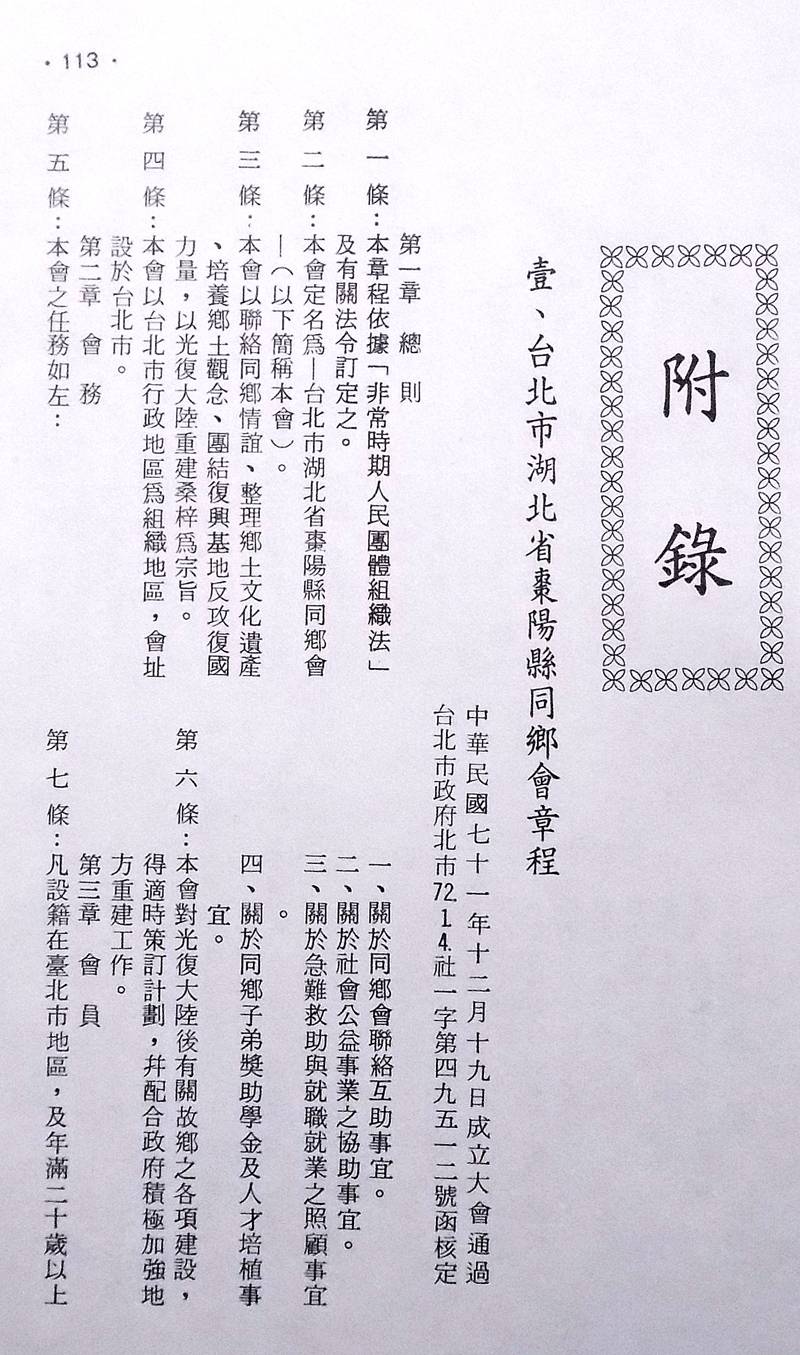 ·113·
附錄
壹、台北市湖北省棗陽縣同鄉會章程
中華民國七十一年十二月十九日成立大會通過
台北市政府北市72.1.4.社一字第四九五一二號函核定
第一章 總則
第一條：本章程依據「非常時期人民團體組織法」
及有關法令訂定之。
第二條：本會定名爲—台北市湖北省棗陽縣同鄉會
—（以下簡稱本會）。
第三條：本會以聯絡同鄉情誼、整理鄉土文化遺產
、培養鄉土觀念、團結復興基地反攻復國
力量，以光復大陸重建桑梓爲宗旨。
第四條：本會以台北市行政地區爲組織地區，會址
設於台北市。
第二章 會務
第五條：本會之任務如左：
一、關於同鄉會聯絡互助事宜。
二、關於社會公益事業之協助事宜。
三、關於急難救助與就職就業之照顧事宜
。
四、關於同鄉子弟獎助學金及人才培植事
宜。
第六條：本會對光復大陸後有關故鄉之各項建設，
得適時策訂計劃，幷配合政府積極加強地
方重建工作。
第三章 會員
第七條：凡設籍在臺北市地區，及年滿二十歲以上